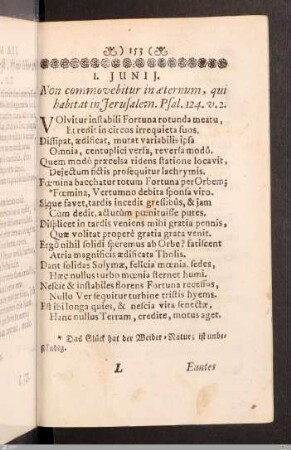 ) 153 (
1. JUNIJ.
Non commovebitur in æternum, qui
habitat in Jerusalem. Psal. 124. v. 2.
VOlvitur instabili Fortuna rotunda meatu,
Et redit in circos irrequieta suos.
Dissipat, ædificat, mutat variabilis ipsa
Omnia, centuplici versa, reversa modô.
Quem modò præcelsa ridens statione locavit,
Dejectum fictis prosequitur lachrymis.
Fœmina bacchatur totum Fortuna per Orbem;
*Fœmina, Vertumno debita sponsa viro.
Sique favet, tardis incedit gressibûs, & jam
Cùm dedit, actutùm pœnituisse putes.
Displicet in tardis veniens mihi gratia pennis,
Quæ volitat properè gratia grata venit.
Ergò nihil solidi speremus ab Orbe? fatiscent
Atria magnificis ædificata Tholis.
Dant solidas Solymæ, felicia mœnia, sedes,
Hæc nullus turbo mœnia sternet humi.
Nescit & instabiles florens Fortuna recessus,
Nullo Ver sequitur turbine tristis hyems.
Est ibi longa quies, & nescia vita senectæ,
Hanc nullus Terram, credite, motus aget.
* Das Glück hat der Weiber-Natur; ist unbe-
ständig.
L Euntes